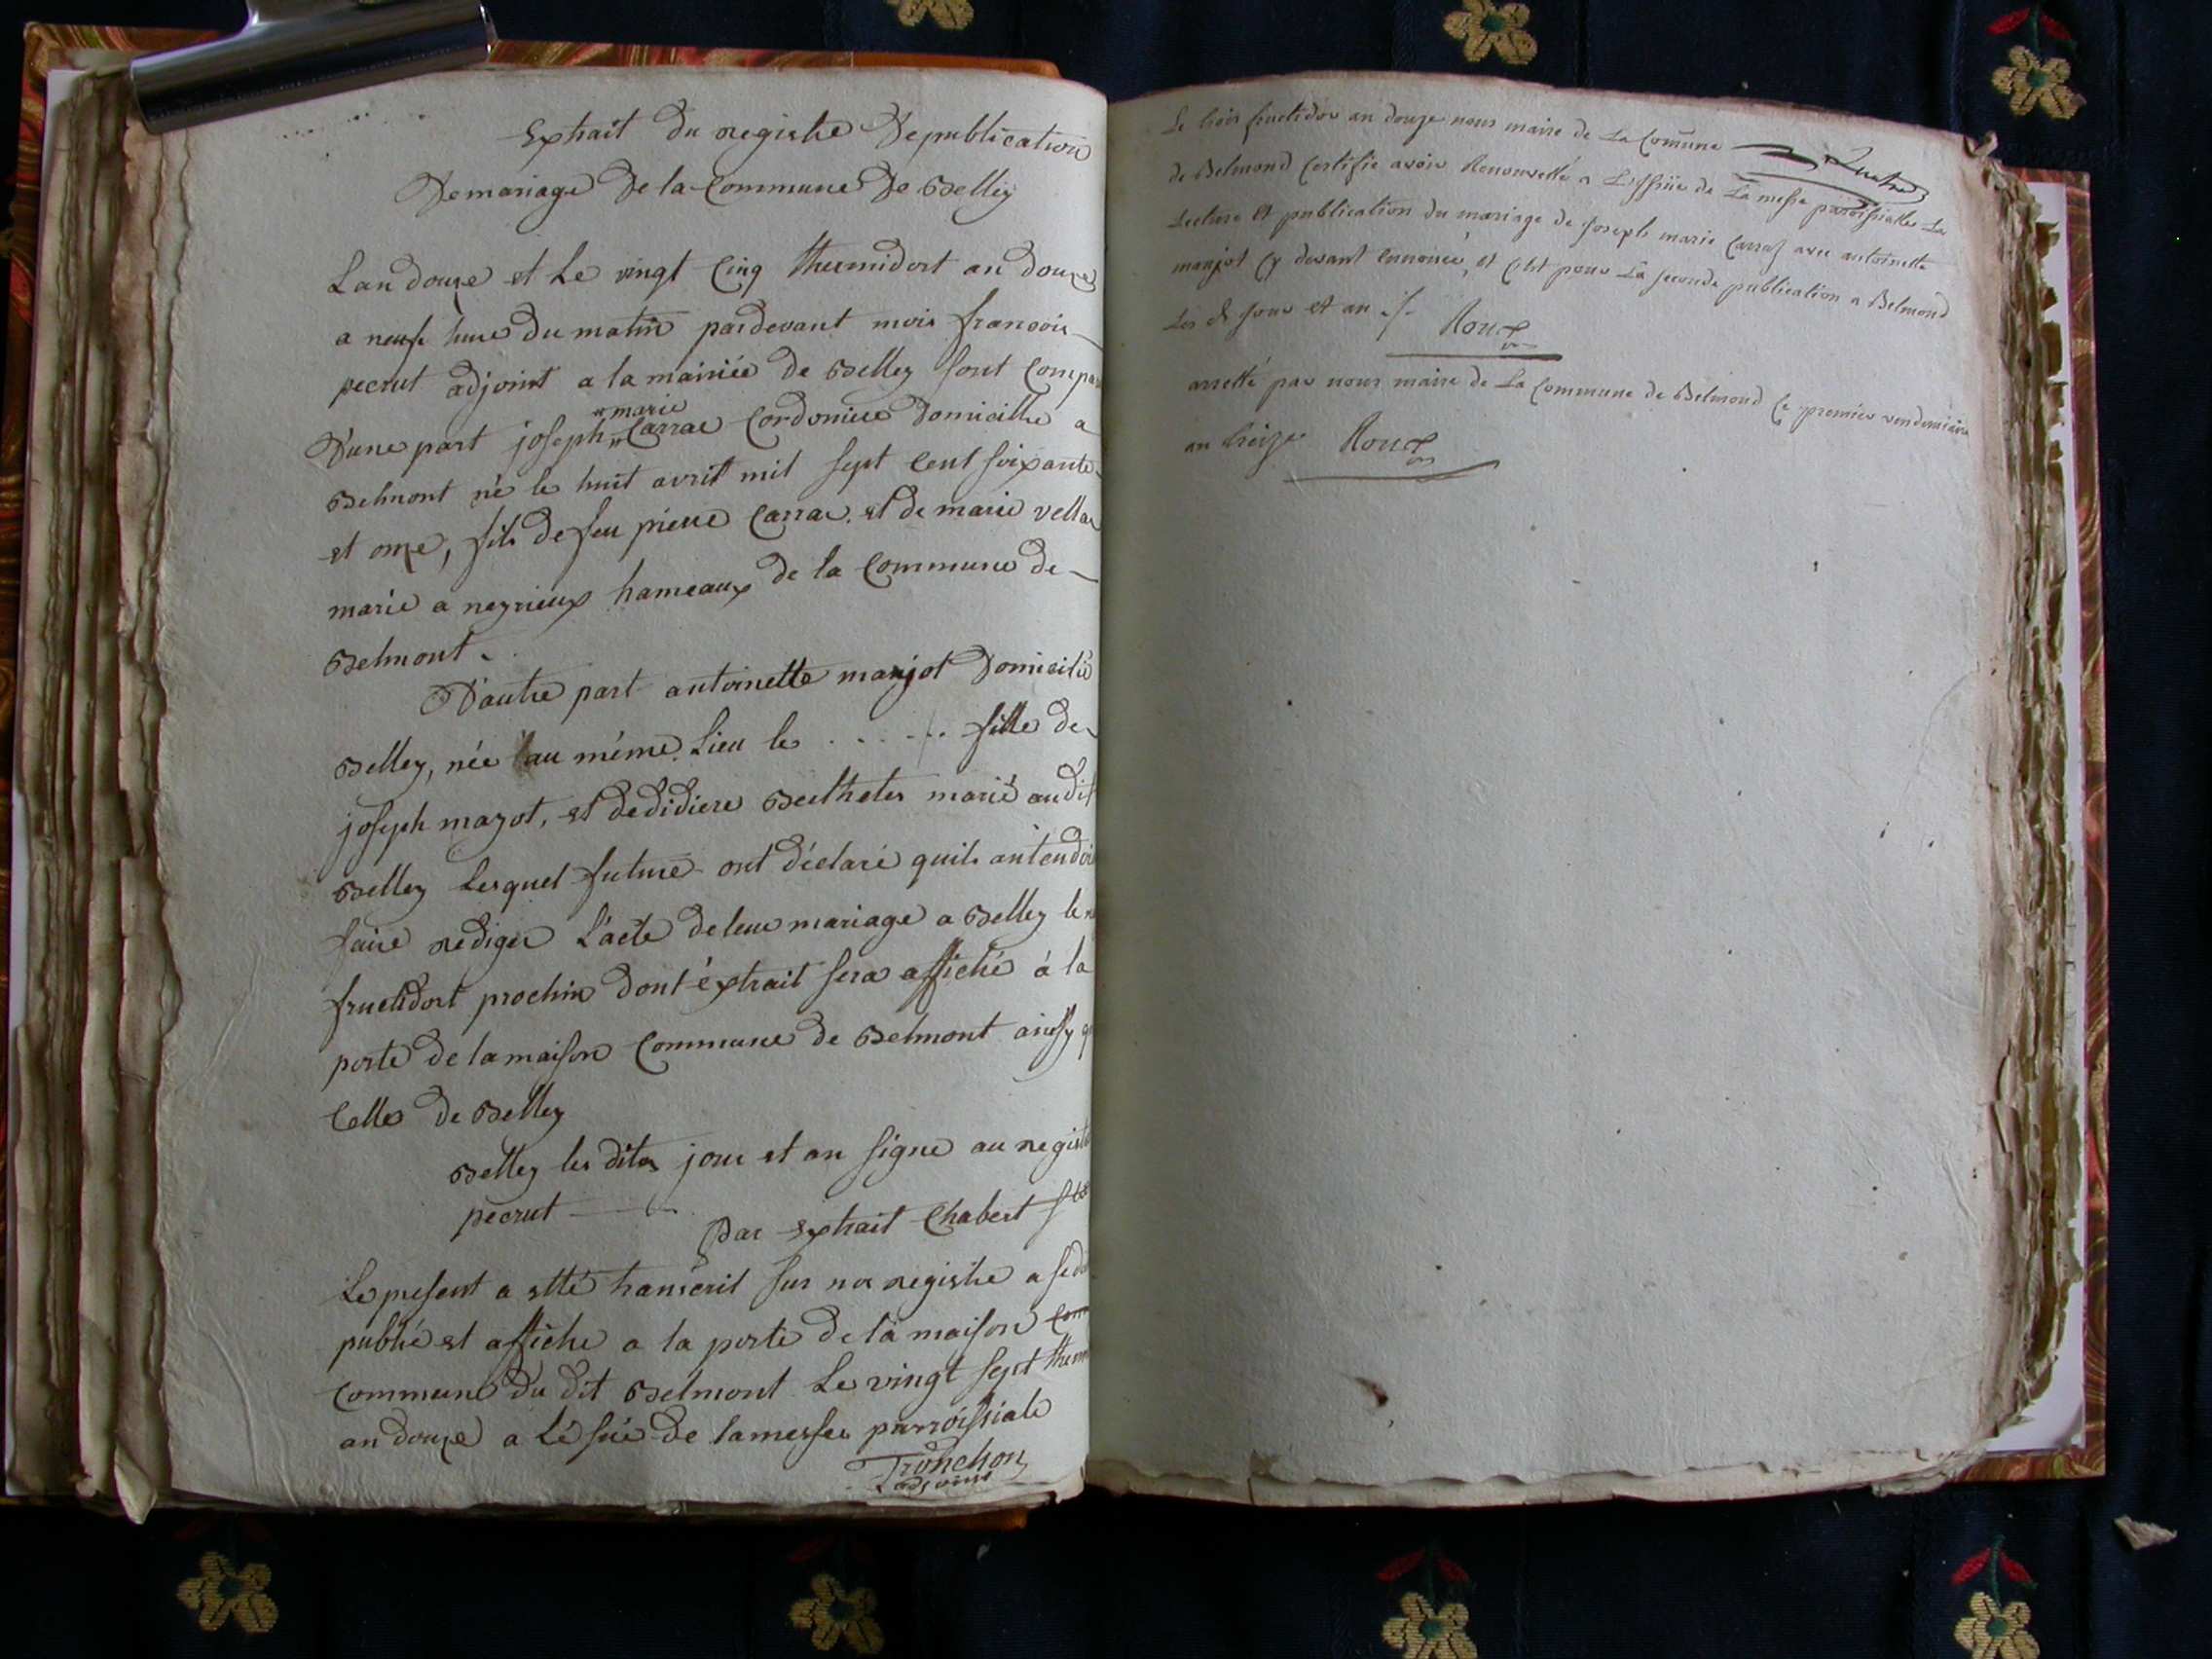 Extrait du registre Depublication
Demariage De la Commune De Belley
Lan douze et Le vingt Cinq thermidort an douze
a neufs heure Du matin pardevant mois francois
pecrut adjoint a la mairiée de Belley sont Compa
D'une part joseph "marie" Carrac Cordoniere Domicillie a
Belmont né le huit avrit mil sept Cent soixante
et onze, fils De feu pierre Carrac. et de marie vellac
marié a neyrieux hameaux de la Commune de
Belmont.
D'autre part antoinette manjot Domicilié
Belley, née au même Lieu le . . . . . . fille de
joseph mazot, et de didiere Berthetes marié audit
Belley Lesquel future ont déclaré quils antendoi
faire rediger L'acte deleur mariage a Belley le
fructidort prochin Dont éxtrait sera affiché à la
porte De la maison Commune de Belmont ainsy q
Celle De Belley
Belley les dites jour et an signe au regist
pecrut
Par Extrait Chabert
Le present a etté transcrit sur nos registre a
publié et affiche a la porte de la maison Com
Commune Du Dit Belmont Le vingt sept therm
an douze a Lésüe de lamesses parroissiale
Tronchon
Ladjoint
Le trois fructidor an douze nous maire de La Comune
de Belmond Certifie avoir Renouvellé a Lissüe de La messe paroissialle La
Lecture Et publication du mariage de joseph marie Carraz avec antoinette
manjot Cy devant Ennoncé, et C'est pour La seconde publication a Belmond
Les d. jour et an ./. Roux
arretté par nous maire de La Commune de Belmond Ce premier vendemiaire
an treize Roux